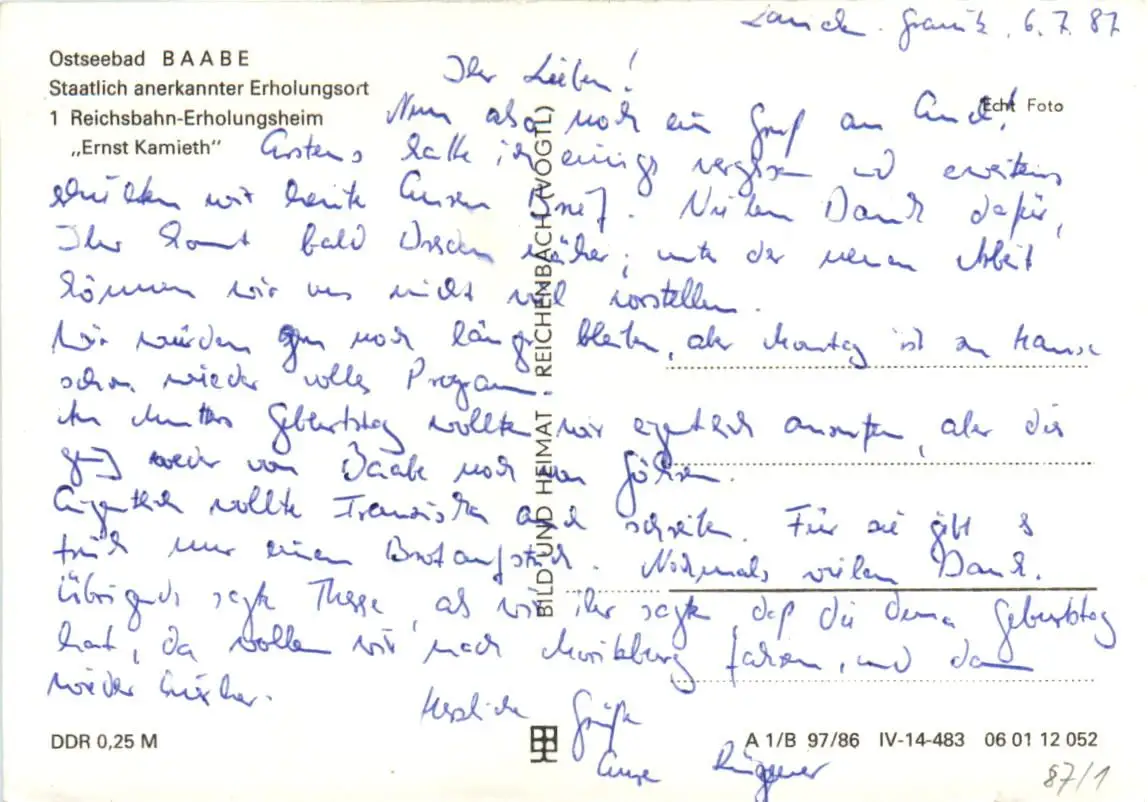 6.7.87
Ostseebad BAABE
Staatlich anerkannter Erholungsort
1 Reichsbahn-Erholungsheim
„Ernst Kamieth“
Echt Foto
Ihr Lieben!
Nun also noch ein Gruß an Euch!
Erstens hatte ich einiges vergessen und zweitens
erhielten wir heute Euren Brief. Vielen Dank dafür,
Ihr kommt bald Dresden näher; unter der neuen Arbeit
können wir uns nicht viel vorstellen.
Wir würden gern noch länger bleiben, aber Montag ist zu Hause
schon wieder volles Programm.
An Mutters Geburtstag wollten wir eigentlich anrufen, aber das
ging weder von Baabe noch von Göhren.
Eigentlich wollte Franziska auch schreiben. Für sie gibt es
früh nur einen Brotaufstrich. Nochmals vielen Dank.
Übrigens sagte, als wir ihr sagten, daß die Geburtstag
hat, da wollen wir nach Moritzburg fahren, und dann
wieder hierher.
Herzliche Grüße
Eure
BILD UND HEIMAT REICHENBACH (VOGTL)
DDR 0,25 M
A 1/B 97/86 IV-14-483 06 01 12 052
87/1